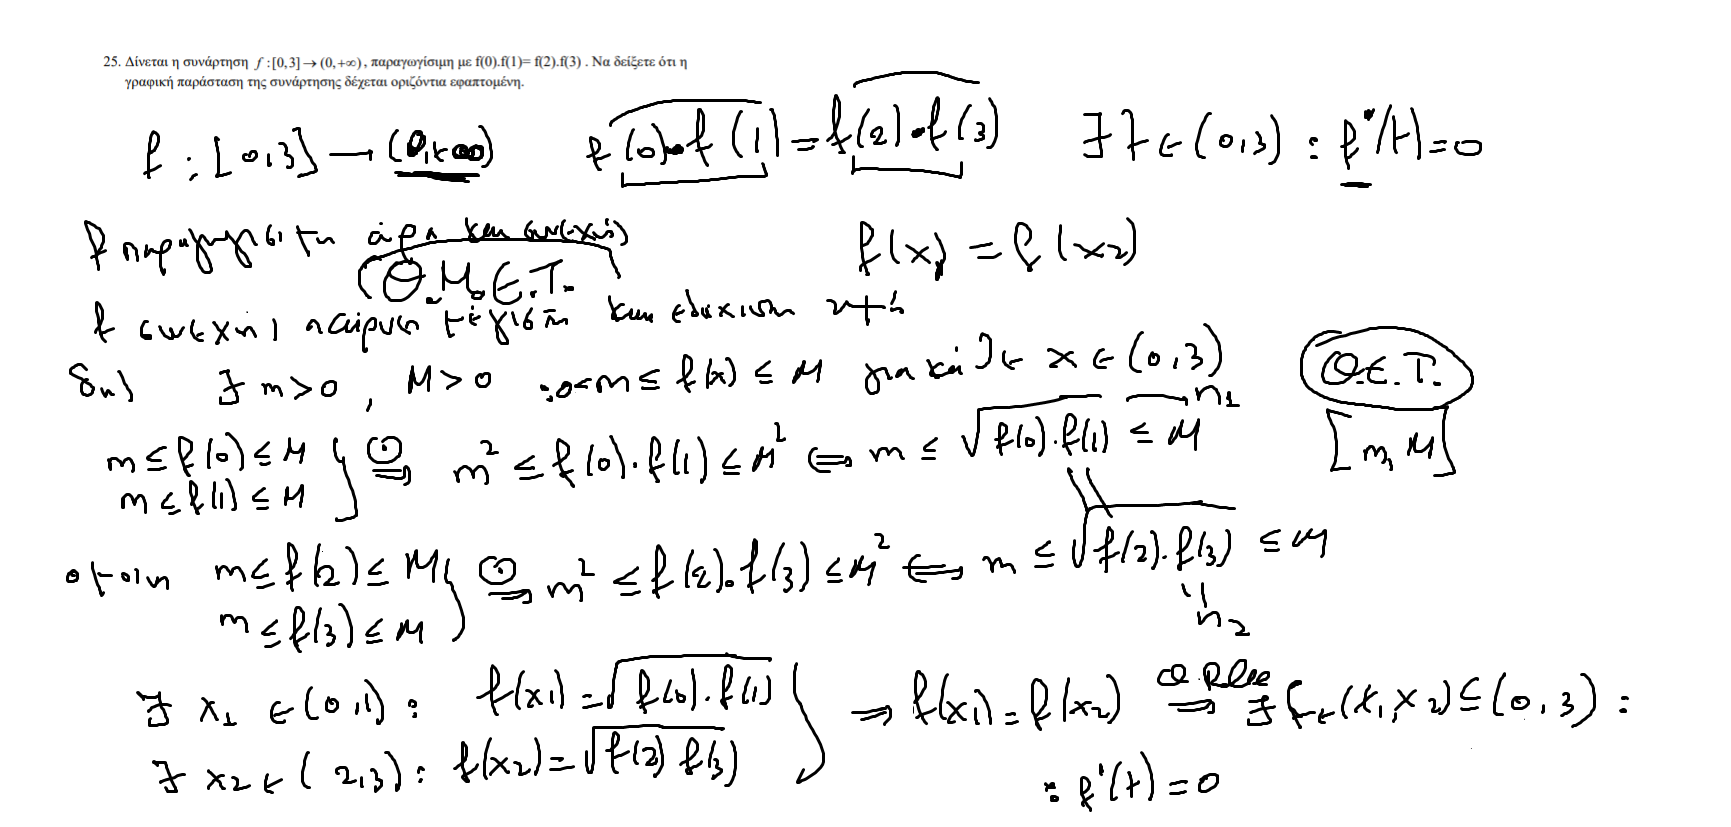 25. Δίνεται η συνάρτηση f :[0,3]→(0,+∞), παραγωγίσιμη με f(0).f(1)= f(2).f(3) . Να δείξετε ότι η
γραφική παράσταση της συνάρτησης δέχεται οριζόντια εφαπτομένη.
f : [0,3] → (0,+∞) f(0)·f(1)=f(2)·f(3) ∃ ξ ∈ (0,3) : f'(ξ)=0
f παραγωγίσιμη άρα και συνεχής f(x₁) = f(x₂)
Θ.Μ.Ε.Τ.
f συνεχής παίρνει μέγιστη και ελάχιστη τιμή
δηλ ∃ m>0, M>0 :0<m≤ f(x) ≤ M για κάθε x ∈ (0,3) Θ.Ε.Τ.
m≤f(0)≤M
m≤f(1)≤M } ⊙⇒ m² ≤ f(0)·f(1) ≤ M² ⇔ m ≤ √f(0)·f(1) ≤ M n₁ [m, M]
όμοια m≤f(2)≤M
m≤f(3)≤M } ⊙⇒ m² ≤ f(2)·f(3) ≤ M² ⇔ m ≤ √f(2)·f(3) ≤ M
n₂
∃ x₁ ∈ (0,1) : f(x₁) = √f(0)·f(1)
∃ x₂ ∈ (2,3) : f(x₂) = √f(2) f(3) } ⇒ f(x₁) = f(x₂) Θ.Rolle ⇒ ∃ ξ∈(x₁,x₂)⊆(0,3) :
: f'(ξ)=0